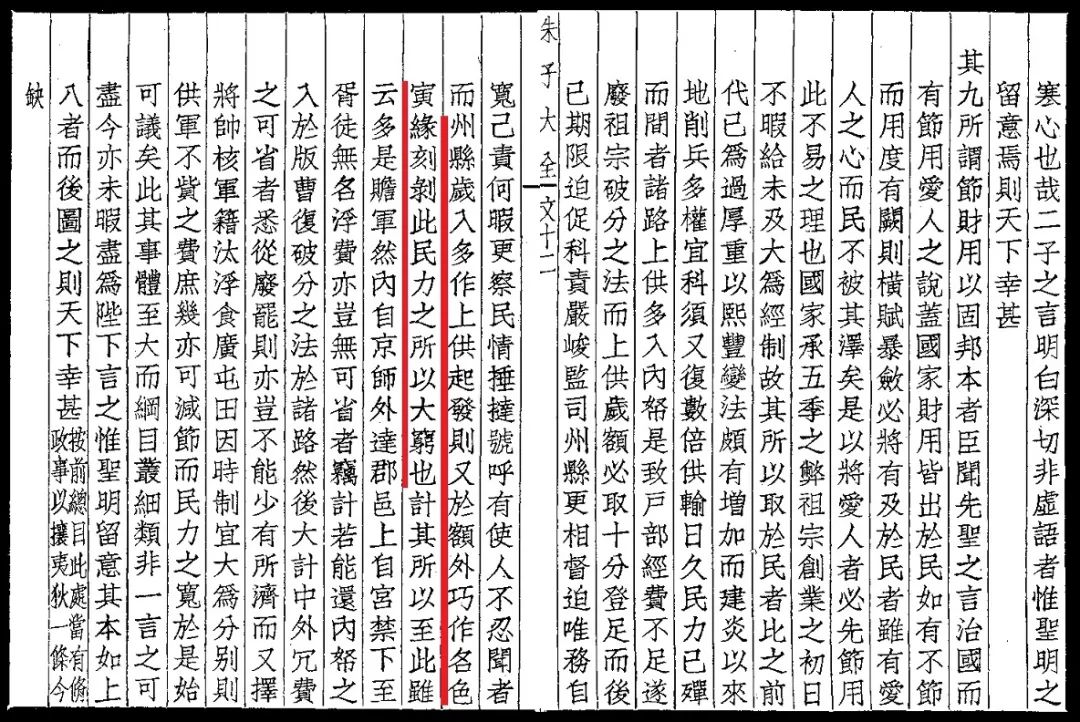 寒心也哉二子之言明白深切非虛語者惟聖明之
留意焉則天下幸甚
其九所謂節財用以固邦本者臣聞先聖之言治國而
有節用愛人之說蓋國家財用皆出於民如有不節
而用度有闕則橫賦暴斂必將有及於民者雖有愛
人之心而民不被其澤矣是以將愛人者必先節用
此不易之理也國家承五季之弊祖宗創業之初日
不暇給未及大爲經制故其所以取於民者比之前
代已爲過厚重以熙豐變法頗有增加而建炎以來
地削兵多權宜科須又復數倍供輸日久民力已殫
而間者諸路上供多入內帑是致戶部經費不足遂
廢祖宗破分之法而上供歲額必取十分登足而後
已期限迫促科責嚴峻監司州縣更相督迫唯務自
朱子大全 文十二
寬己責何暇更察民情捶撻號呼有使人不忍聞者
而州縣歲入多作上供起發則又於額外巧作名色
寅緣刻剝此民力之所以大窮也計其所以至此雖
云多是贍軍然內自京師外達郡邑上自宮禁下至
胥徒無名浮費亦豈無可省者竊計若能還內帑之
入於版曹復破分之法於諸路然後大計中外冗費
之可省者悉從廢罷則亦豈不能少有所濟而又擇
將帥核軍籍汰浮食廣屯田因時制宜大爲分別則
供軍不貲之費庶幾亦可減節而民力之寬於是始
可議矣此其事體至大而綱目叢細類非一言之可
盡今亦未暇盡爲陛下言之惟聖明留意其本如上
八者而後圖之則天下幸甚
按前總目此處當有脩
政事以攘夷狄一條今
缺